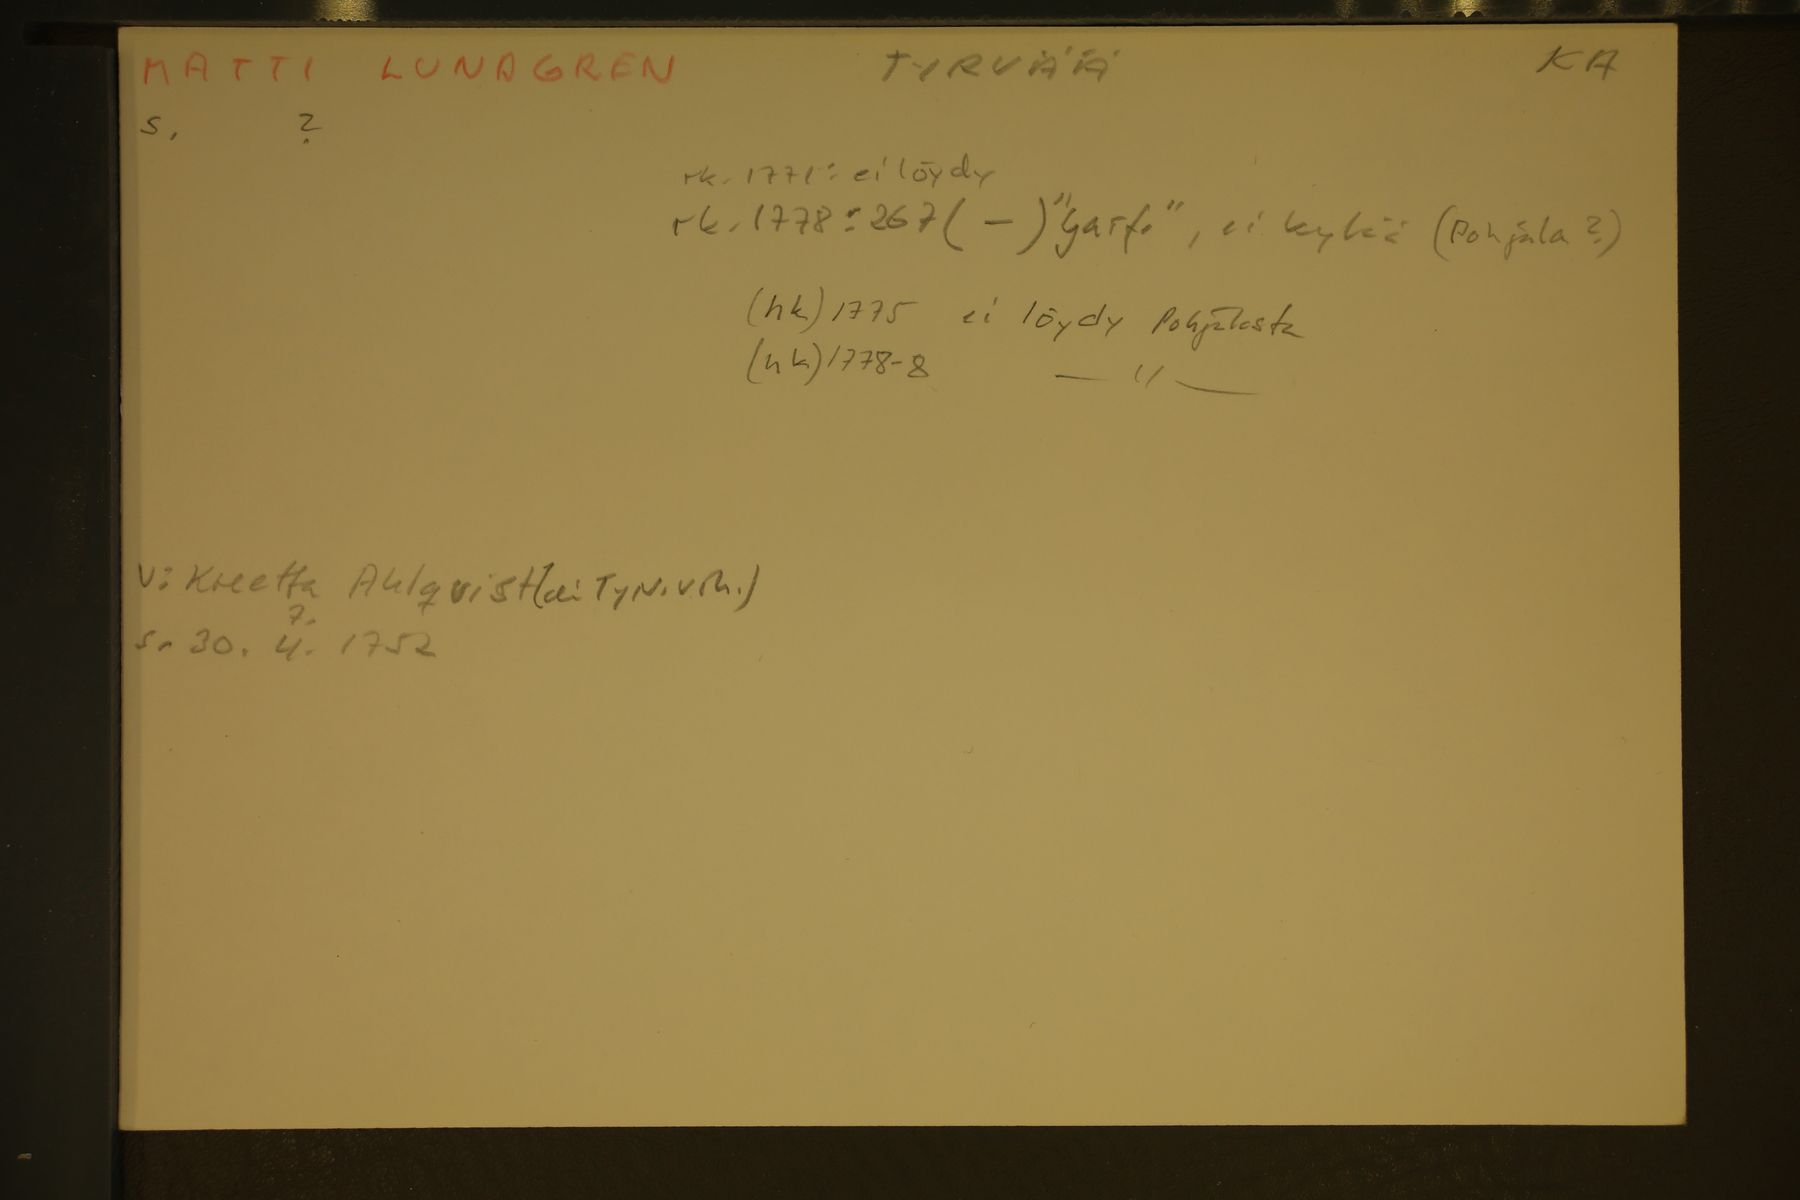 MATTI LUNDGREN TYRVÄÄ KA
s. ?
rk. 1771: ei löydy
rk. 1778: 267 ( — ) , ei kylää (Pohjala?)
(hk) 1775 ei löydy Pohjalasta
(hk) 1778-8 — " —
V: Kreetta Ahlqvist (ei Tyrv. )
?.
s. 30. 4. 1752